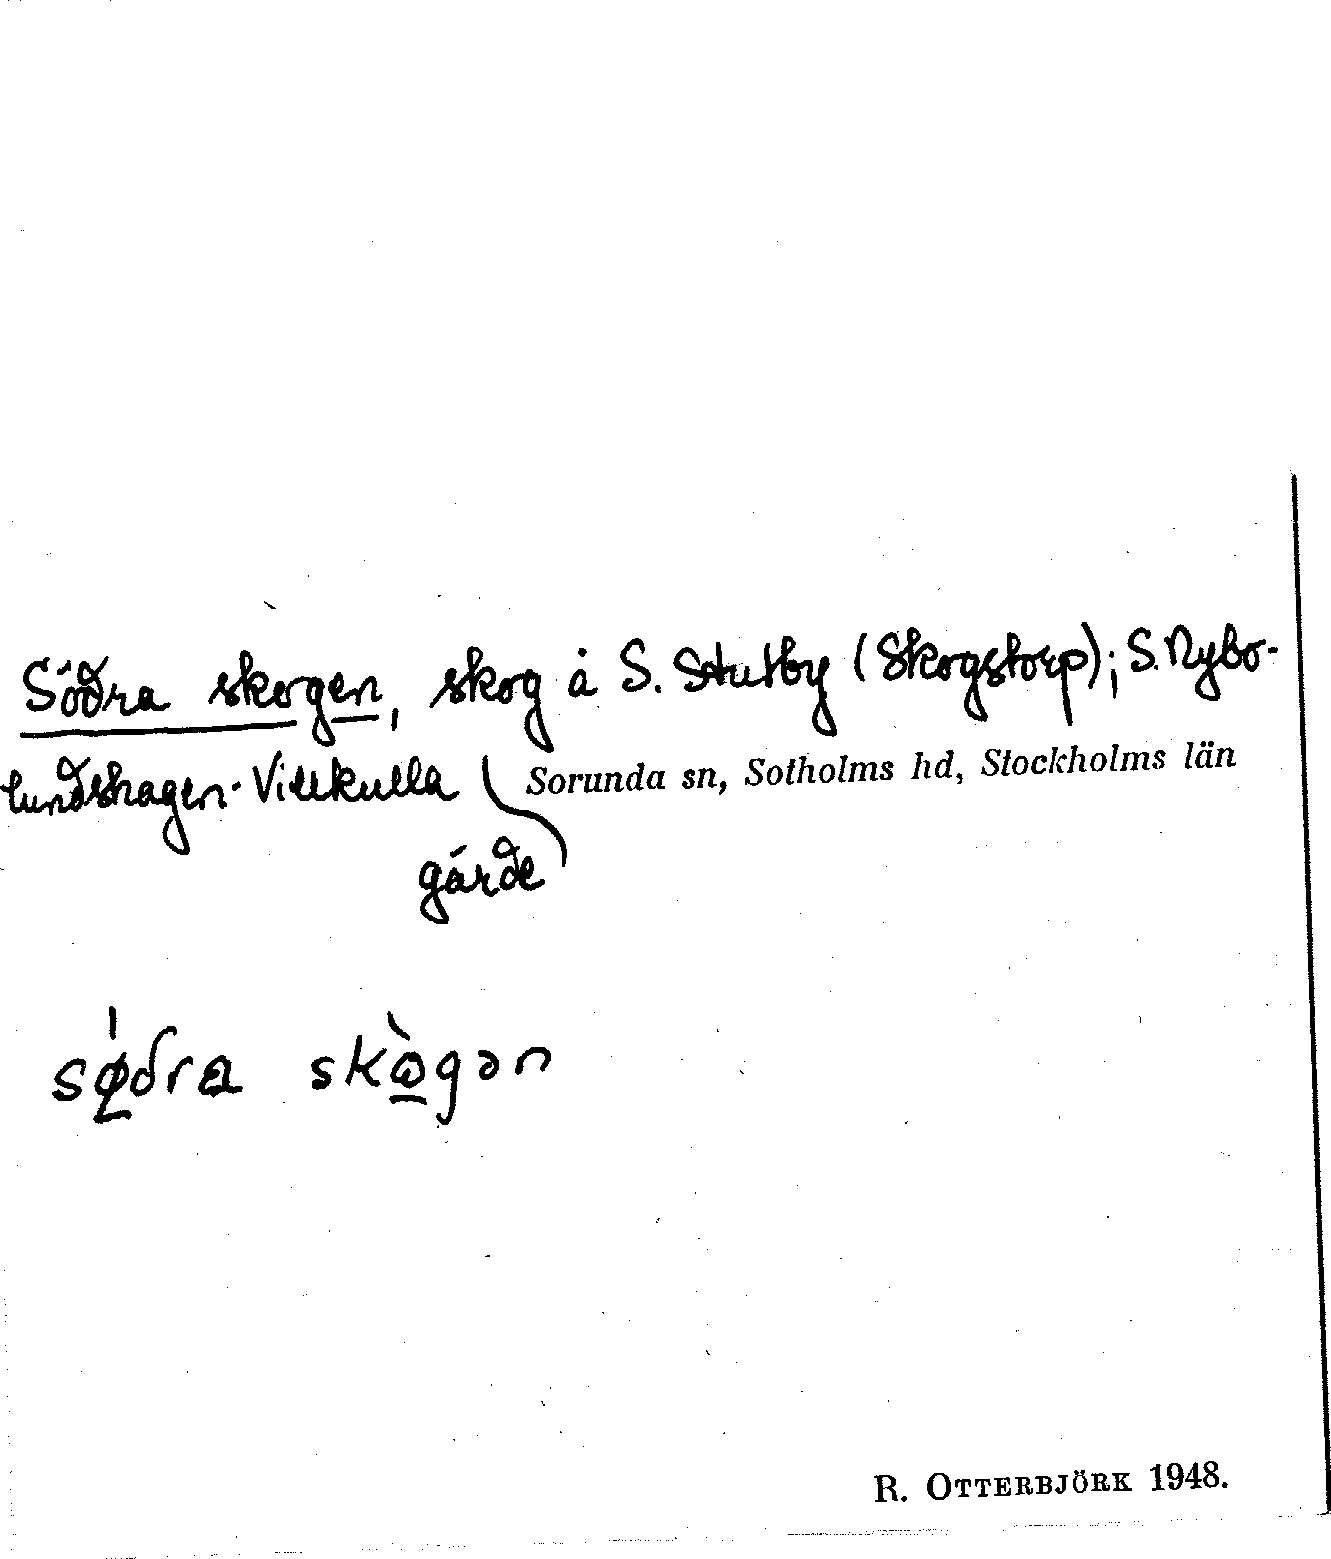 Södra skogen, skog å S. Stutby (Skogstorp); S. Nybo-
lundshagen-Villkulla
Sorunda sn, Sotholms hd, Stockholms län
gärde
sø̀dra skògən
R. OTTERBJÖRK 1948.